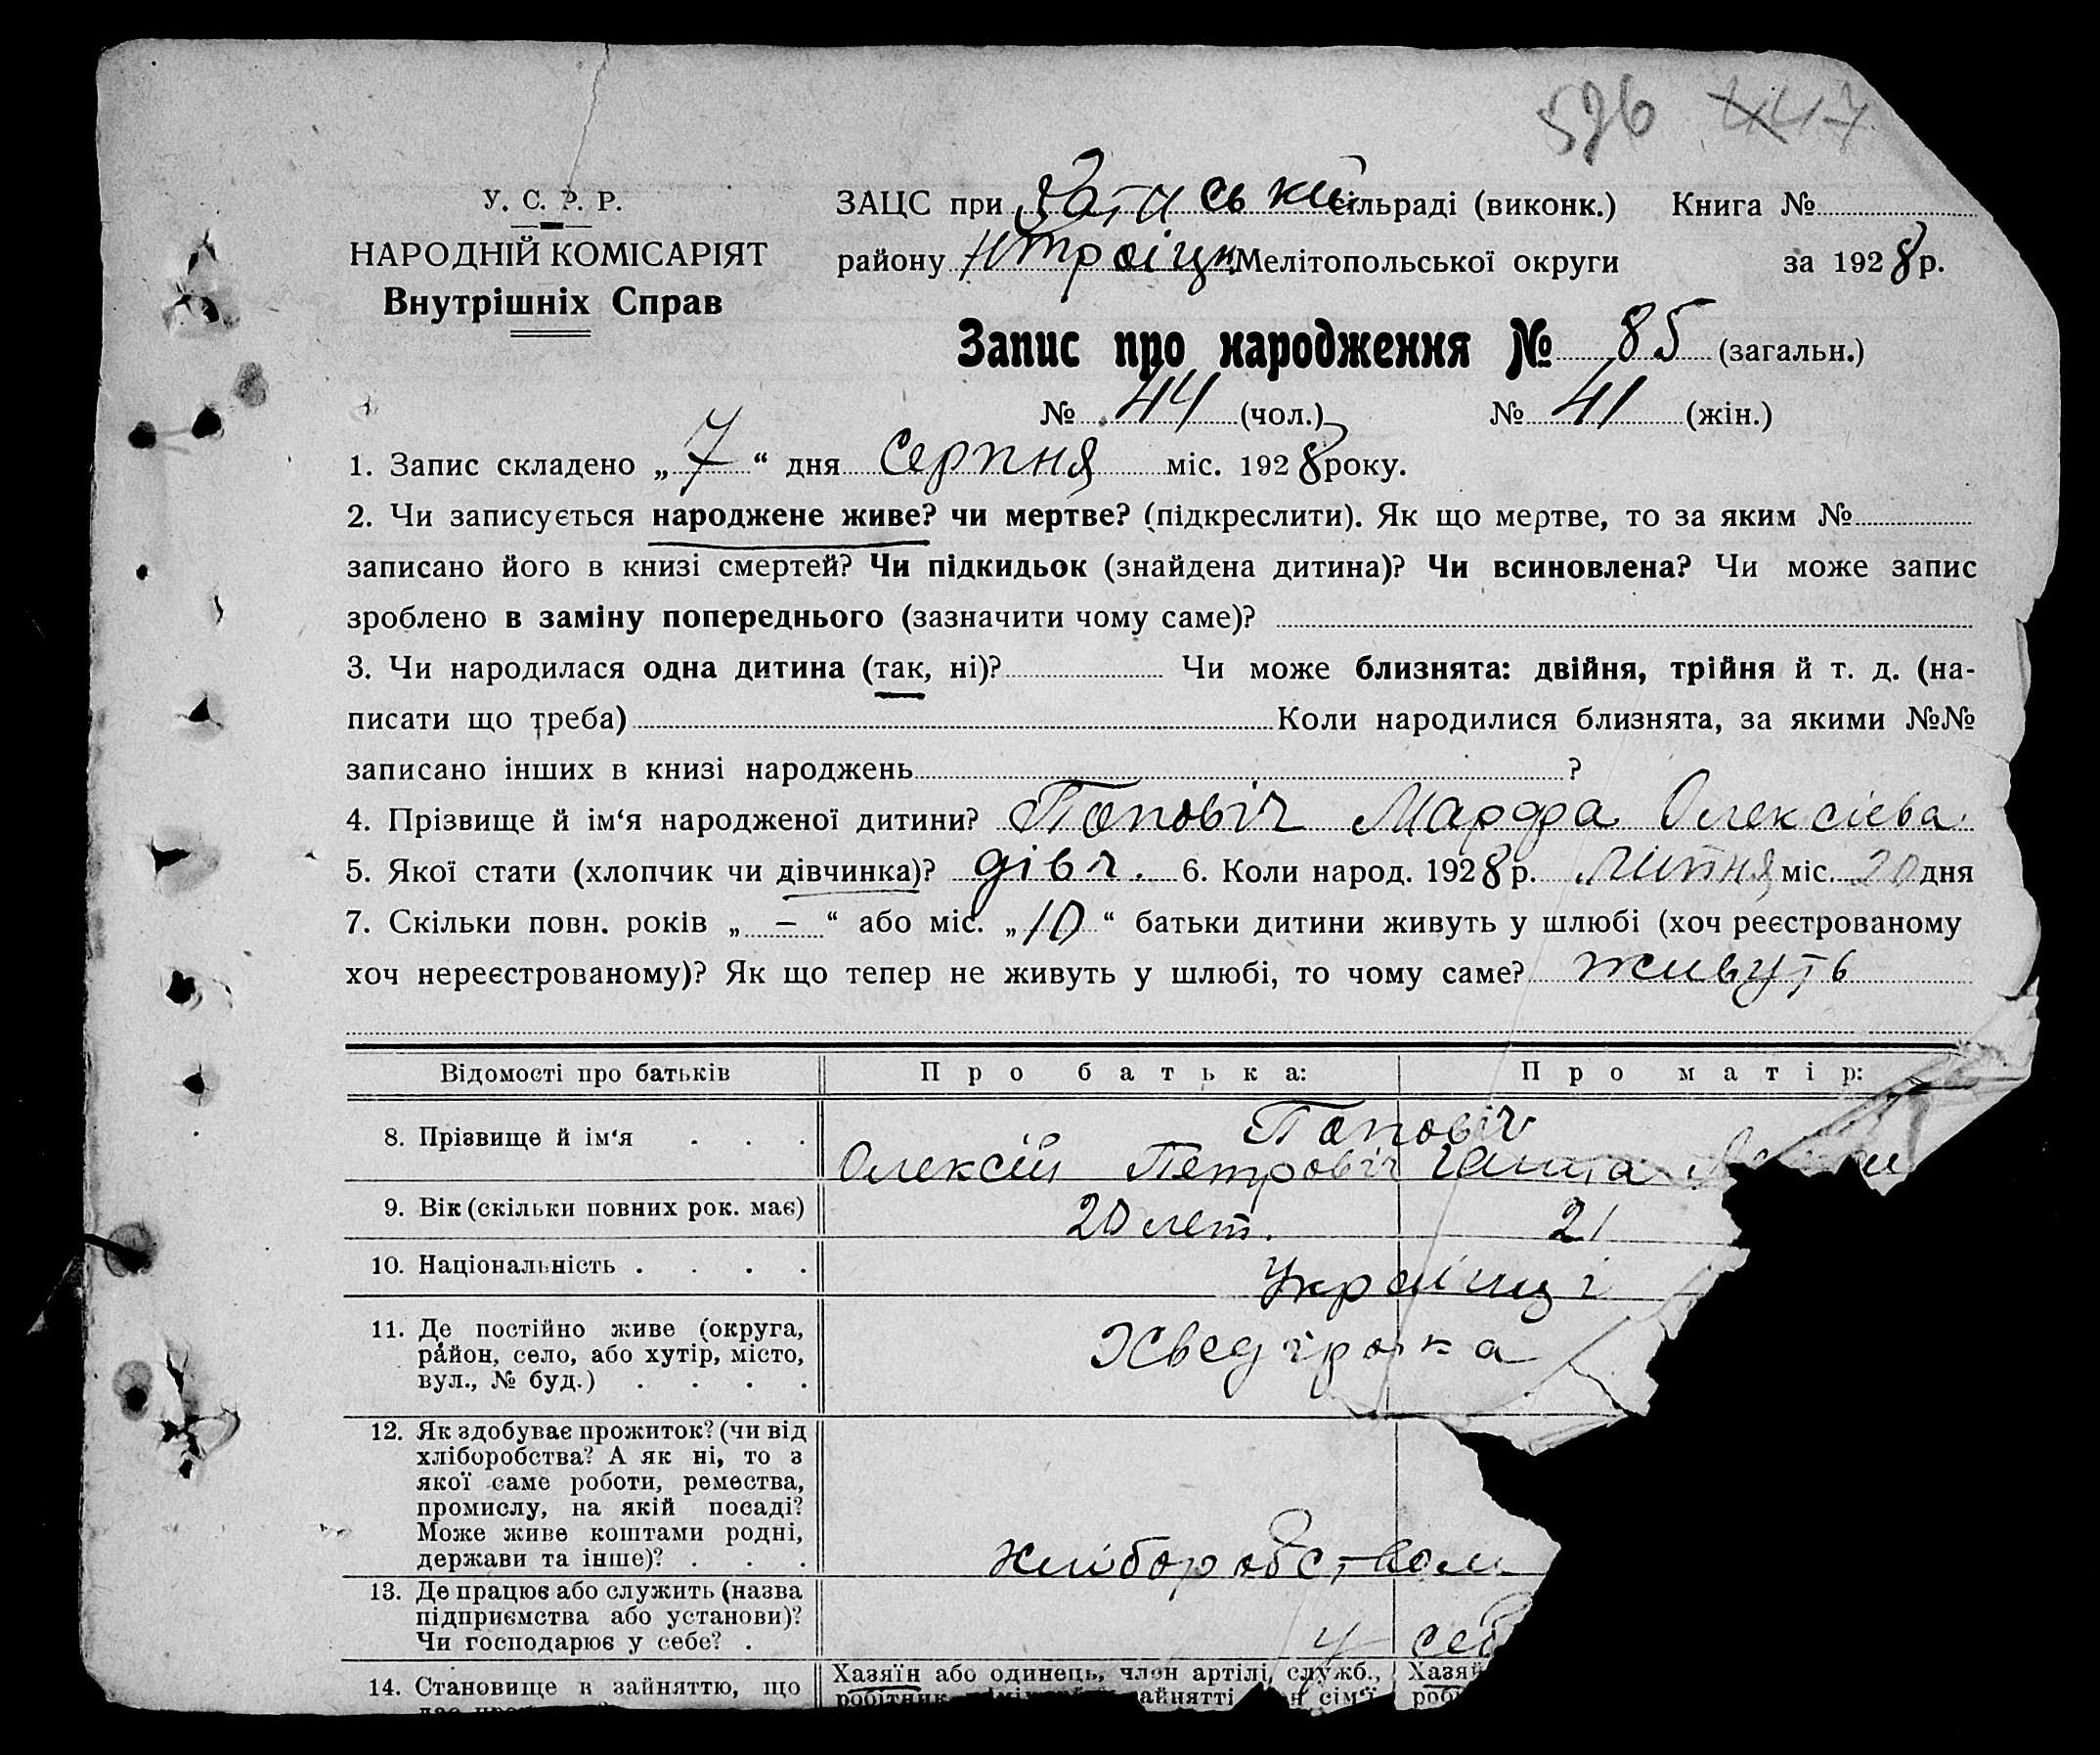 596 447
У. С. Р. Р.
НАРОДНІЙ КОМІСАРІЯТ
Внутрішніх Справ
ЗАЦС при сільраді (виконк.) Книга №
району Мелітопольської округи за 1928 р.
Запис про народження № 85 (загальн.)
№ 44 (чол.) № 41 (жін.)
1. Запис складено „ 7 “ дня Серпня міс. 1928 року.
2. Чи записується народжене живе? чи мертве? (підкреслити). Як що мертве, то за яким №
записано його в книзі смертей? Чи підкидьок (знайдена дитина)? Чи всиновлена? Чи може запис
зроблено в заміну попереднього (зазначити чому саме)?
3. Чи народилася одна дитина (так, ні)? Чи може близнята: двійня, трійня й т. д. (на-
писати що треба) Коли народилися близнята, за якими №№
записано інших в книзі народжень ?
4. Прізвище й ім‘я народженої дитини? Поповіч Марфа Олексієва
5. Якої стати (хлопчик чи дівчинка)? дівч. 6. Коли народ. 1928 р. липня міс. 20 дня
7. Скільки повн. років „ — “ або міс. „ 10 “ батьки дитини живуть у шлюбі (хоч реєстрованому
хоч нереєстрованому)? Як що тепер не живуть у шлюбі, то чому саме? живуть
Відомості про батьків Про батька: Про матір:
8. Прізвище й ім‘я . . . Поповіч
Олексій Петровіч Ганна
9. Вік (скільки повних рок. має) 20 лет. 21
10. Національність . . . . Українці
11. Де постійно живе (округа,
район, село, або хутір, місто,
вул., № буд.) . . . .
12. Як здобуває прожиток? (чи від
хліборобства? А як ні, то з
якої саме роботи, ремества,
промислу, на якій посаді?
Може живе коштами родні,
держави та інше)? . . . хліборобством
13. Де працює або служить (назва
підприємства або установи)?
Чи господарює у себе? . у себ
14. Становище в зайняттю, що Хазяїн або одинець, член артілі, служб., Хазяї